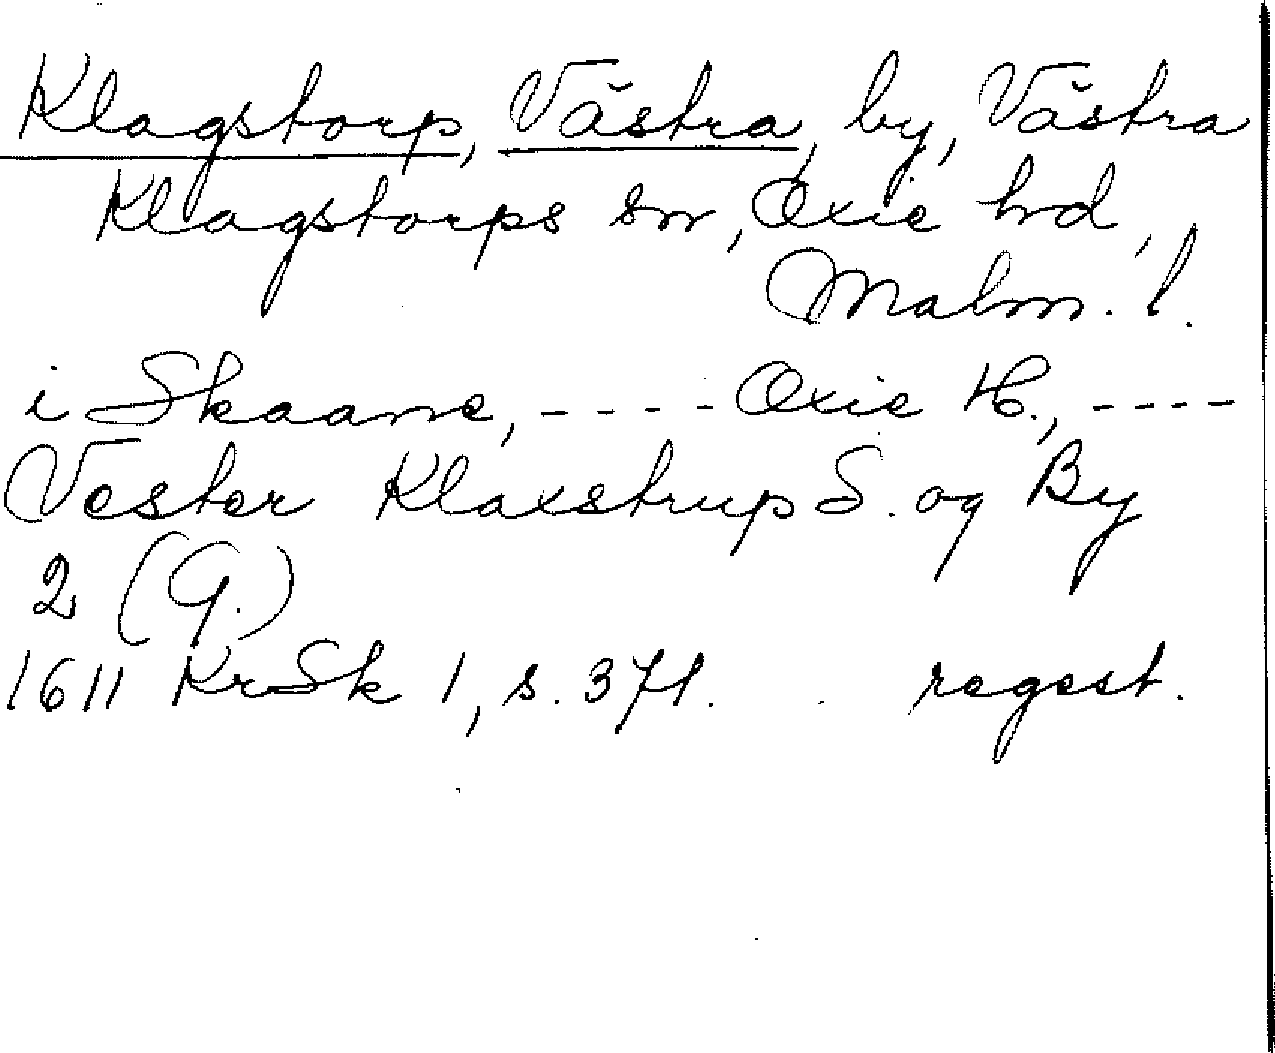 Klagstorp, Västra, by, Västra
Klagstorps sn, Oxie hd,
Malm. l.
i Skaane, ---- Oxie H., ----
Vester Klaxstrup S. og By
2 (G.)
1611 KrSk 1, s. 371. regest.